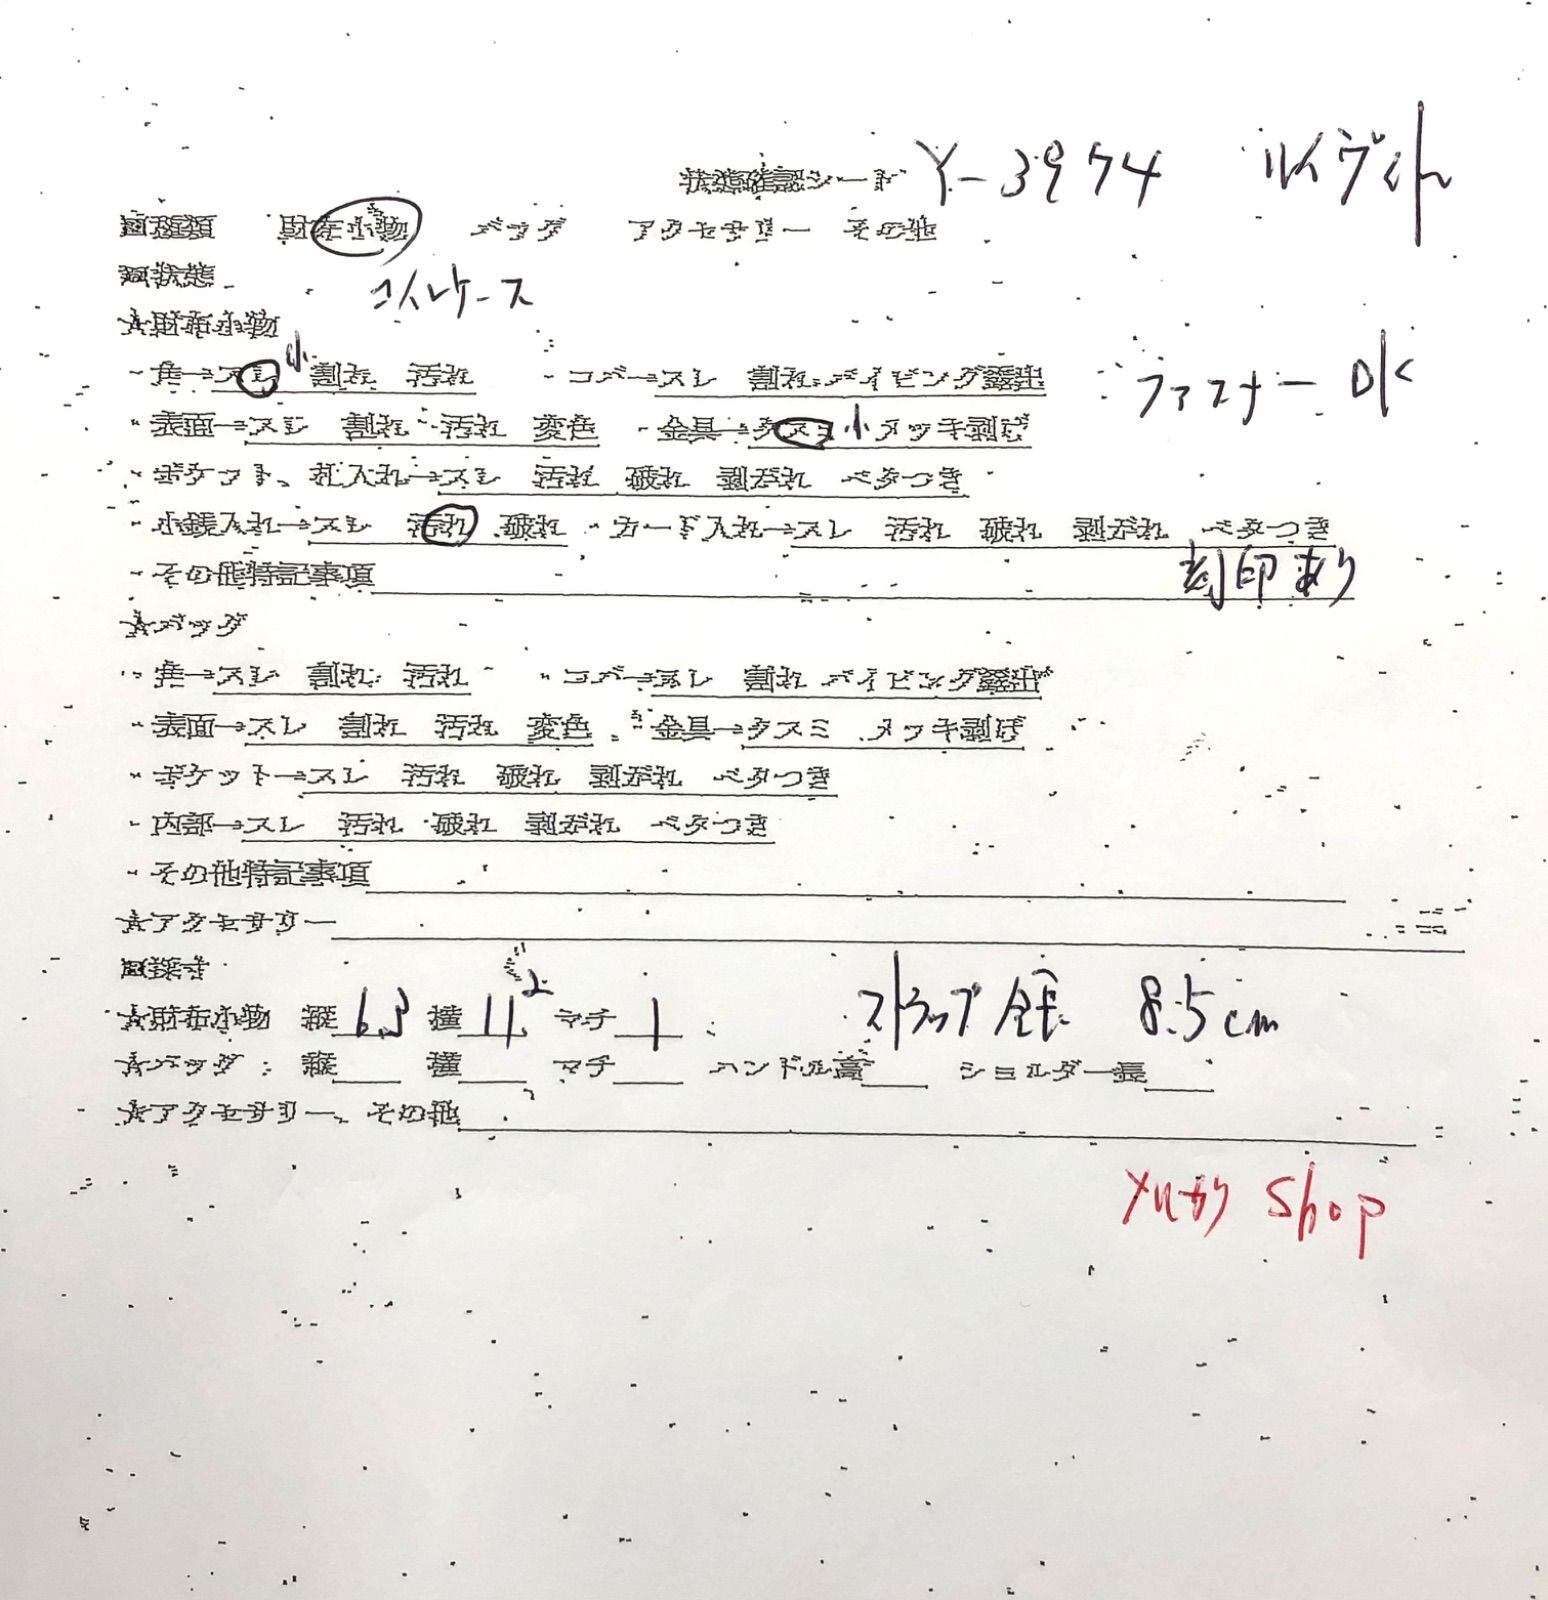 状態確認シート Y-3974 ルイヴィトン
□種類 財布小物 バッグ アクセサリー その他
□状態 コインケース
☆財布小物
・角→スレ小 割れ 汚れ ・コバ→スレ 割れ パイピング露出 ファスナー OK
・表面→スレ 割れ 汚れ 変色 ・金具→クスミ小 メッキ剥げ
・ポケット、札入れ→スレ 汚れ 破れ 剥がれ ベタつき
・小銭入れ→スレ 汚れ 破れ ・カード入れ→スレ 汚れ 破れ 剥がれ ベタつき
・その他特記事項 刻印あり
☆バッグ
・角→スレ 割れ 汚れ ・コバ→スレ 割れ パイピング露出
・表面→スレ 割れ 汚れ 変色 ・金具→クスミ メッキ剥げ
・ポケット→スレ 汚れ 破れ 剥がれ ベタつき
・内部→スレ 汚れ 破れ 剥がれ ベタつき
・その他特記事項
☆アクセサリー
□採寸
☆財布小物 縦 6.3 横 11.2 マチ 1 ストラップ全長 8.5cm
☆バッグ 縦 横 マチ ハンドル高 ショルダー長
☆アクセサリー、その他
メルカリ Shop